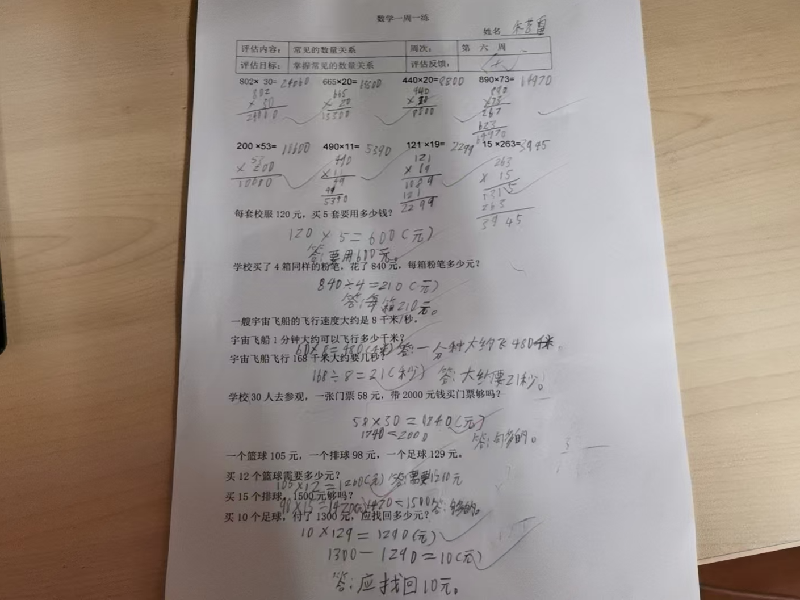 数学一周一练
姓名
评估内容： 常见的数量关系 周次： 第 六 周
评估目标： 掌握常见的数量关系 评估反馈：
802×30=24060 665×20= 440×20=8800 890×73=
802 665 440 890
×30 ×20 ×20 ×73
24060 8800 267
623
200×53= 490×11=5390 121×19=2299 15×263=3945
53 490 121 263
×200 ×11 ×19 × 15
10600 49 1315
49 121 263
5390 2299 3945
每套校服120元，买5套要用多少钱？
120×5=600(元)
答:要用600元。
学校买了4箱同样的粉笔，花了840元，每箱粉笔多少元？
840÷4=210(元)
答:每箱210元。
一艘宇宙飞船的飞行速度大约是8千米/秒。
宇宙飞船1分钟大约可以飞行多少千米？
60×8=480(千米) 答:一分钟大约飞480千米
宇宙飞船飞行168千米大约要几秒？
168÷8=21(秒) 答:大约要21秒。
学校30人去参观，一张门票58元，带2000元钱买门票够吗？
58×30=1740(元)
1740<2000
答:够的。
一个篮球105元，一个排球98元，一个足球129元。
买12个篮球需要多少元？
105×12=1260(元) 答:需要
买15个排球，1500元够吗？
98×15=1470(元) 1470<1500 答:够的。
买10个足球，付了1300元，应找回多少元？
10×129=1290(元)
1300-1290=10(元)
答:应找回10元。